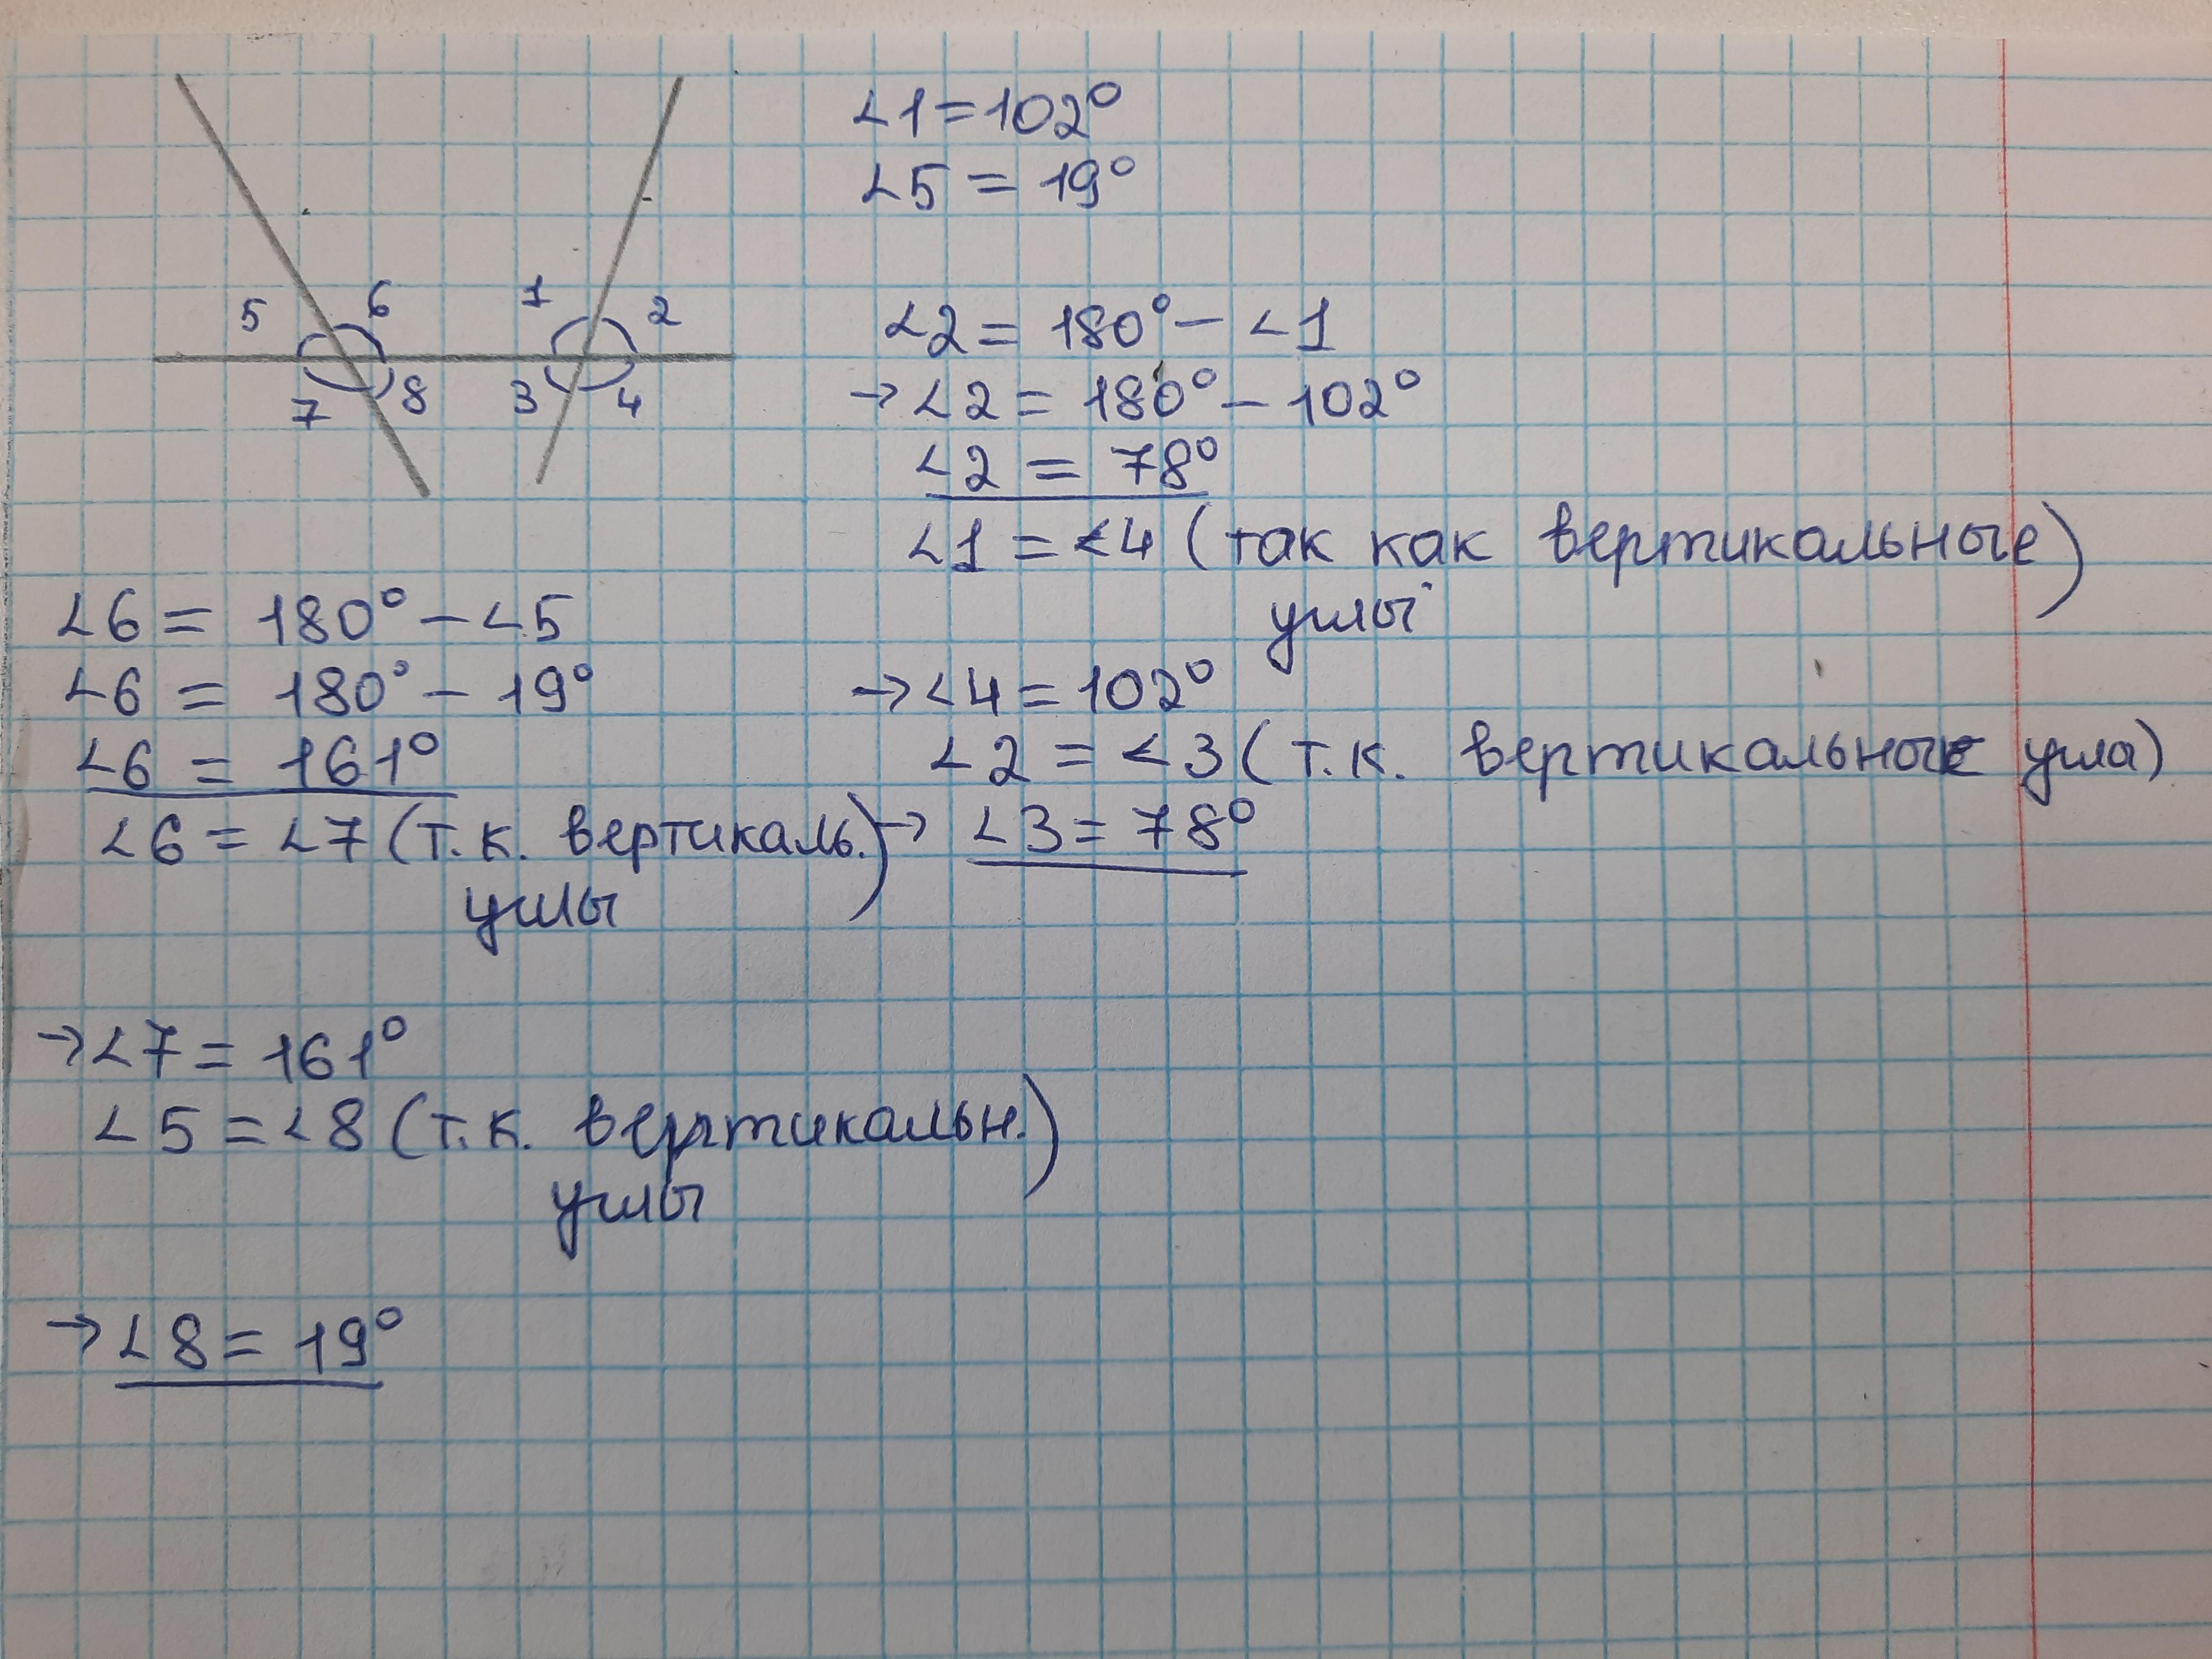 ∠1=102°
∠5 = 19°
5 6 1 2
7 8 3 4
∠2= 180°- ∠1
→ ∠2 = 180°- 102°
∠2 = 78°
∠1 = ∠4 (так как вертикальные
углы)
→∠4=102°
∠2 = ∠3 (т.к. вертикальные угла)
→ ∠3=78°
∠6= 180°-∠5
∠6 = 180°- 19°
∠6 = 161°
∠6 = ∠7 (т.к. вертикаль.
углы)
→∠7= 161°
∠5 =∠8 (т.к. вертикальн.
углы)
→∠8= 19°